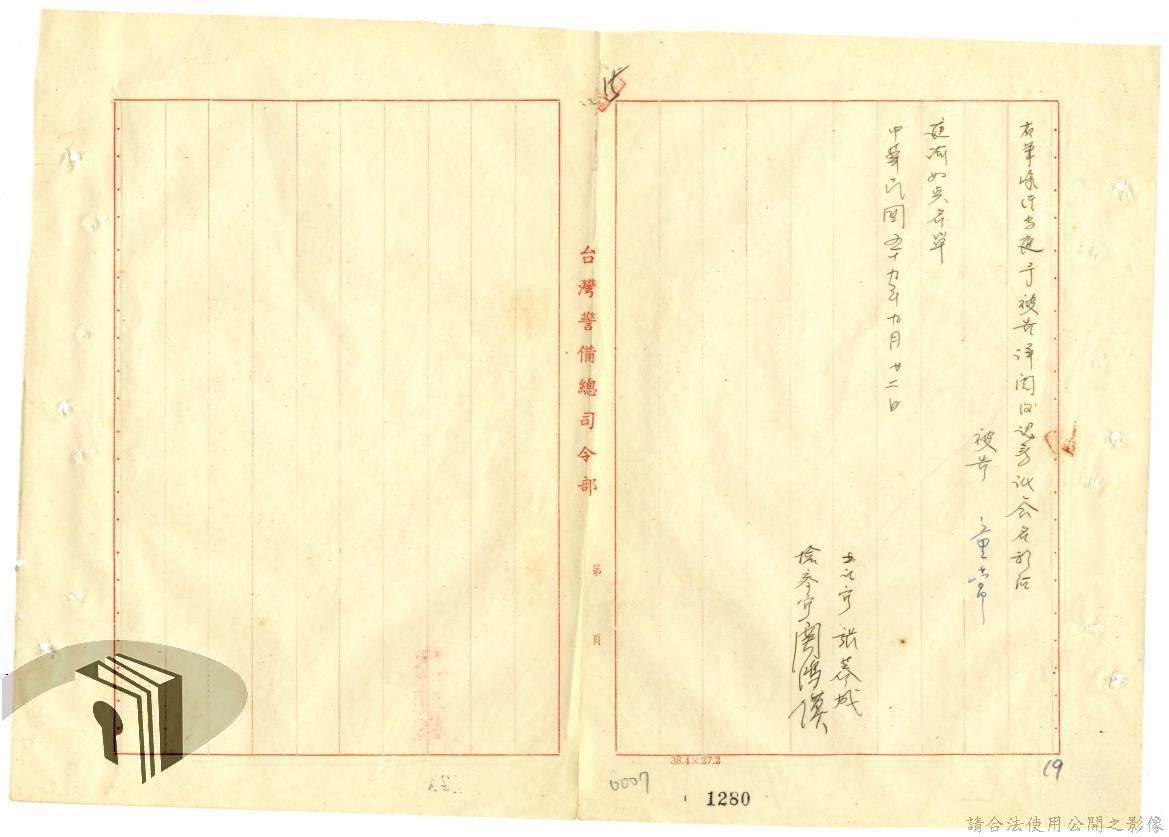 右筆錄經當庭交被告詳閱後認無訛簽名於后
被告 童常
庭諭如點名單
中華民國五十九年九月廿二日
書記官 張奉城
檢察官 周鴻漢
台灣警備總司令部
第 頁
38.4×27.2
19
0007
1280
請合法使用公開之影像